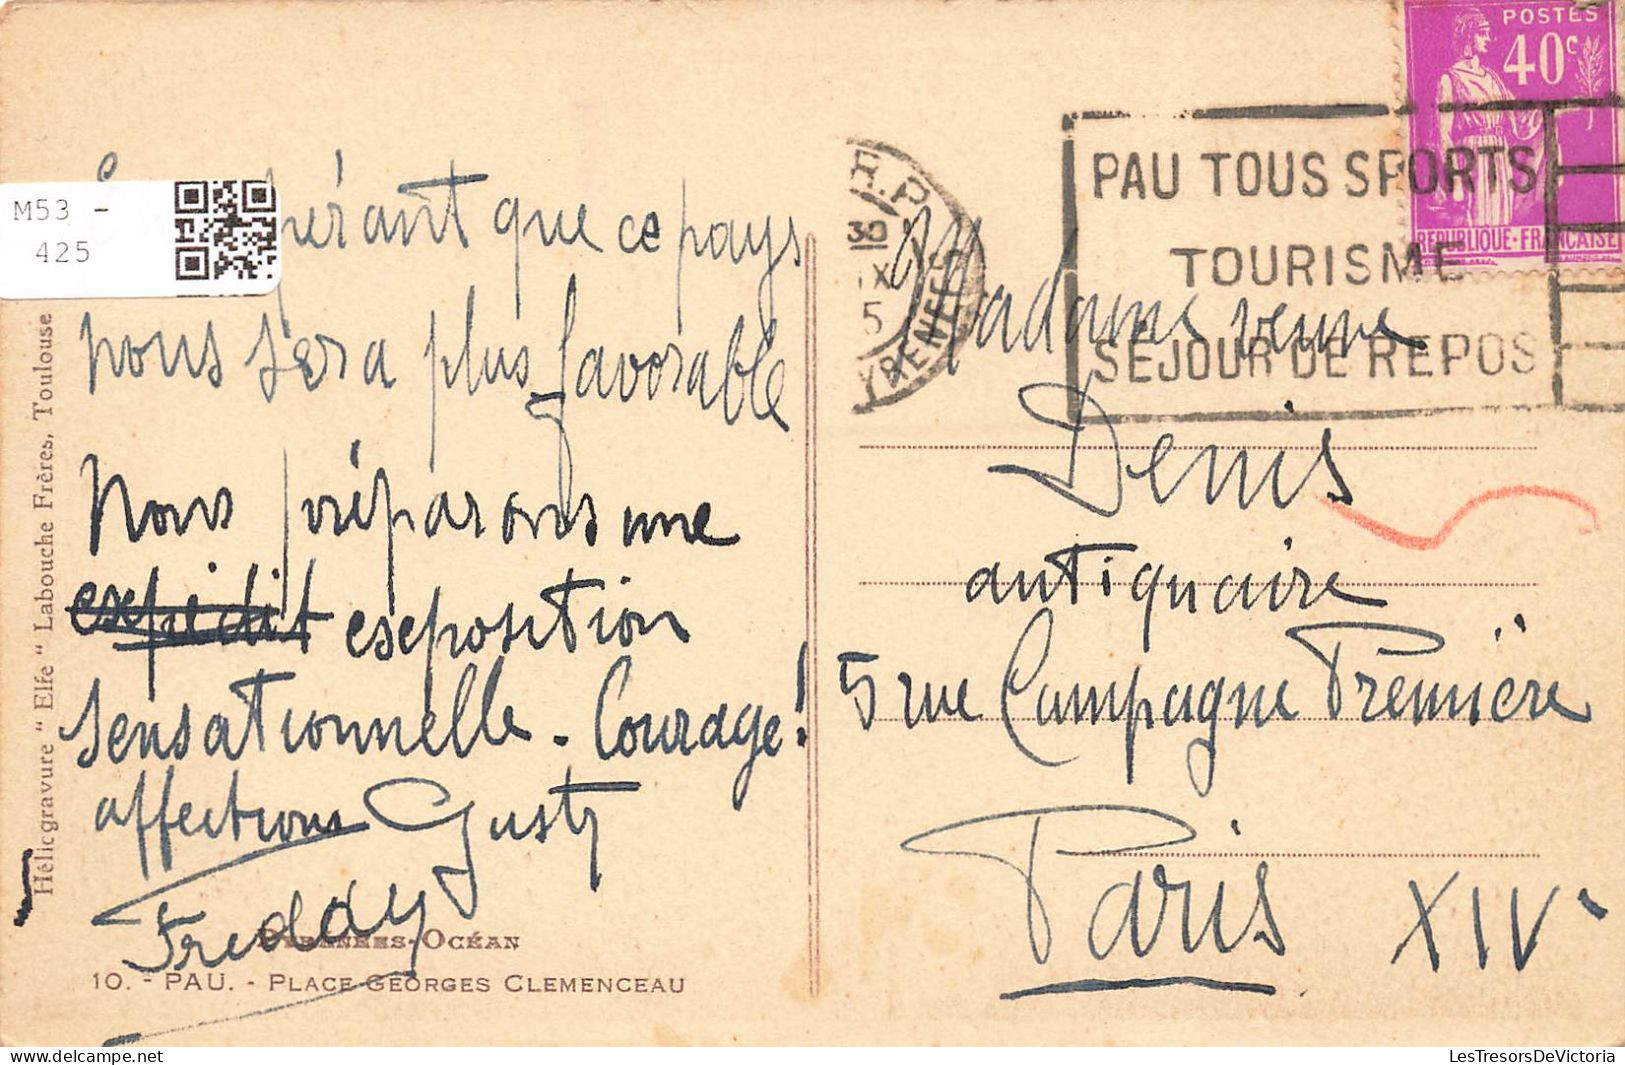 M53 -
425
pérant que ce pays
nous sera plus favorable
Nous préparons une
expédit exposition
sensationnelle - Courage!
affections Gusty
Freddy
PYRÉNÉES-OCÉAN
10. - PAU. - PLACE GEORGES CLEMENCEAU
Hélicgravure "Elfe" Labouche Frères, Toulouse
POSTES
40c
REPUBLIQUE·FRANÇAISE
PAU TOUS SPORTS
TOURISME
SÉJOUR DE REPOS
30
IX
5
Madame veuve
Denis
antiquaire
5 rue Campagne Première
Paris XIVe
LesTresorsDeVictoria